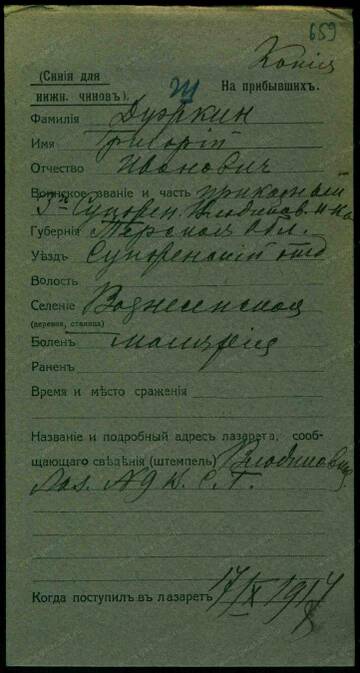 659
Копия
(Синія для
нижн. чиновъ).
На прибывшихъ.
Фамилія Дуркин
Имя Григорій
Отчество Иванович
Воинское званіе и часть приказный
Губернія Терская обл.
Уѣздъ Сунженскій отд
Волость
Селеніе Вознесенская
(деревня, станица)
Боленъ малярія
Раненъ
Время и мѣсто сраженія
Названіе и подробный адресъ лазарета, сооб-
щающаго свѣдѣнія (штемпель)
Лаз. №9 В. С. Г.
Когда поступилъ въ лазаретъ 17/IX 1917